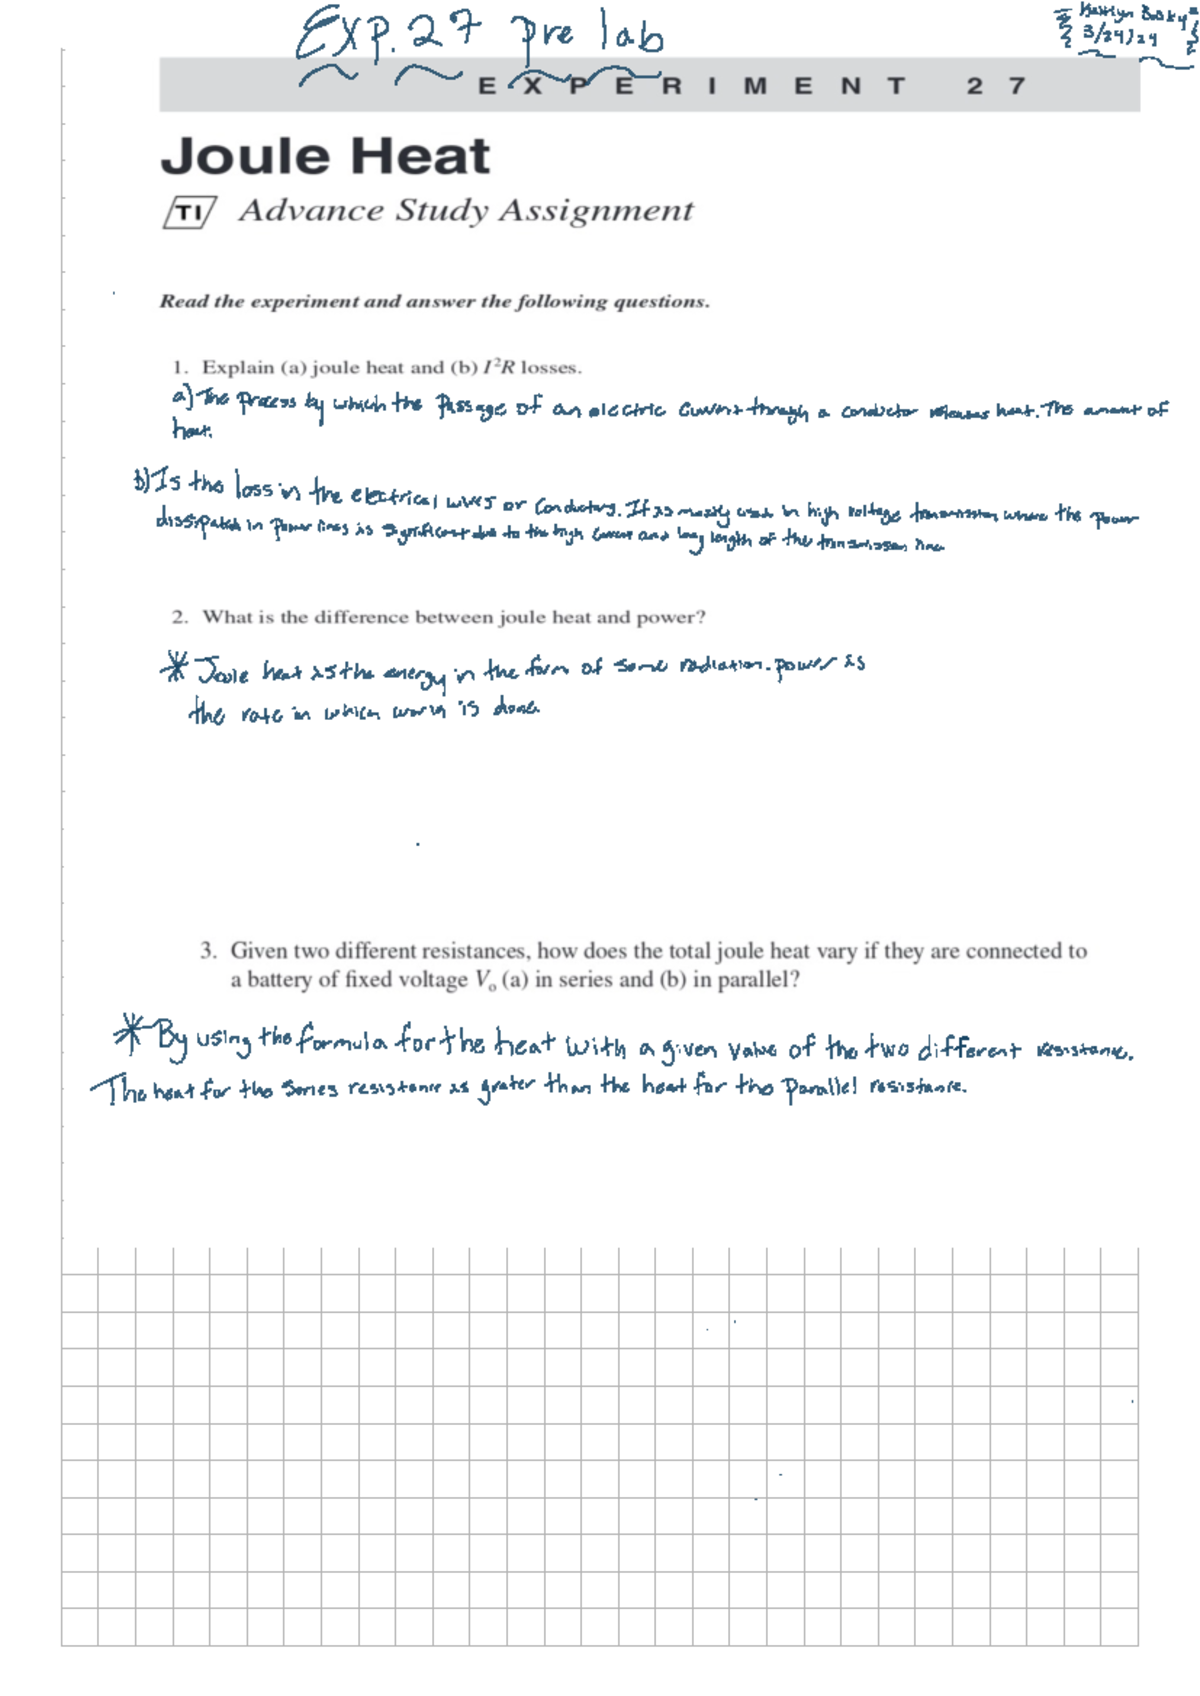 Exp. 27 Pre lab
3/24/24
EXPERIMENT 27
Joule Heat
TI Advance Study Assignment
Read the experiment and answer the following questions.
1. Explain (a) joule heat and (b) I²R losses.
a) The process by which the passage of an electric current through a conductor releases heat. The amount of
heat.
b) Is the loss in the electrical wires or conductors. It is mostly used in high voltage transmission where the power
dissipated in power lines is significant due to the high current and long length of the transmission line
2. What is the difference between joule heat and power?
* Joule heat is the energy in the form of some radiation. power is
the rate in which work is done.
3. Given two different resistances, how does the total joule heat vary if they are connected to
a battery of fixed voltage Vo (a) in series and (b) in parallel?
* By using the formula for the heat with a given value of the two different resistance.
The heat for the series resistance is grater than the heat for the parallel resistance.